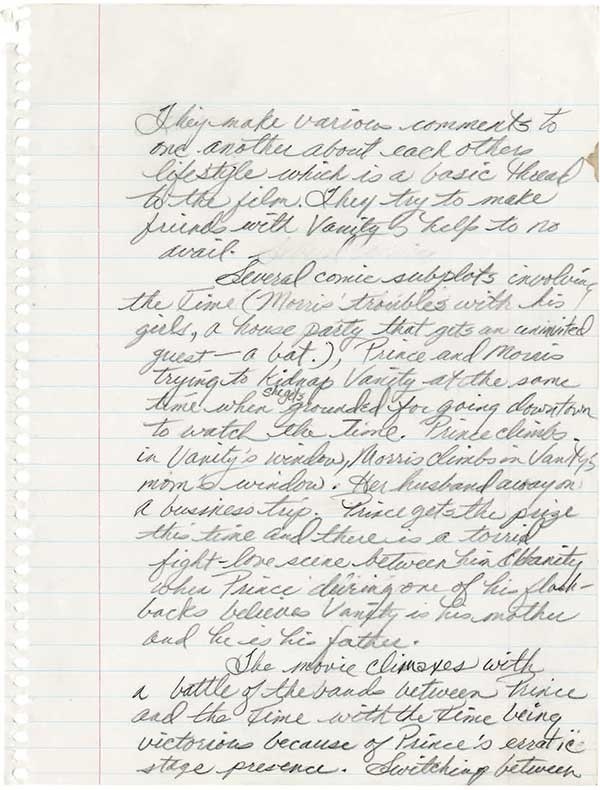 They make various comments to
one another about each others
lifestyle which is a basic thread
to the film. They try to make
friends with Vanity's help to no
avail.
Several comic subplots involving
the Time (Morris' troubles with his
girls, a house party that gets an uninvited
guest — a bat.), Prince and Morris
trying to kidnap Vanity at the same
time when she gets grounded for going downtown
to watch the Time. Prince climbs
in Vanity's window, Morris climbs in Vanity's
mom's window. Her husband away on
a business trip. Prince gets the prize
this time and there is a torrid
fight-love scene between him & Vanity
when Prince during one of his flash-
backs believes Vanity is his mother
and he is his father.
The movie climaxes with
a battle of the bands between Prince
and the Time with the Time being
victorious because of Prince's erratic
stage presence. Switching between